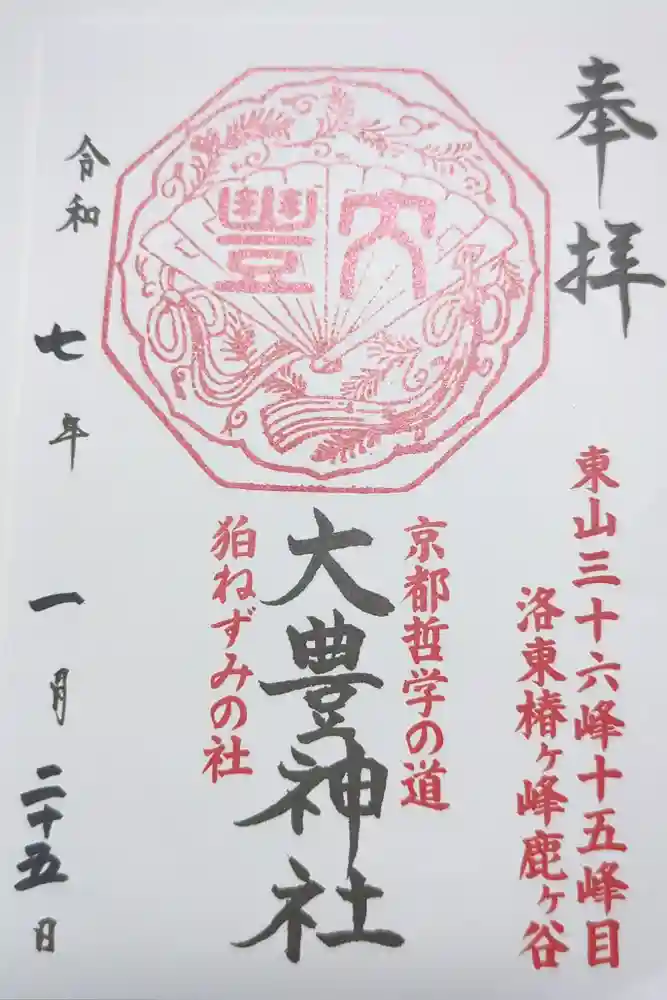 奉拝
東山三十六峰十五峰目
洛東椿ヶ峰鹿ヶ谷
大豊
京都哲学の道
大豊神社
狛ねずみの社
令和七年一月二十五日